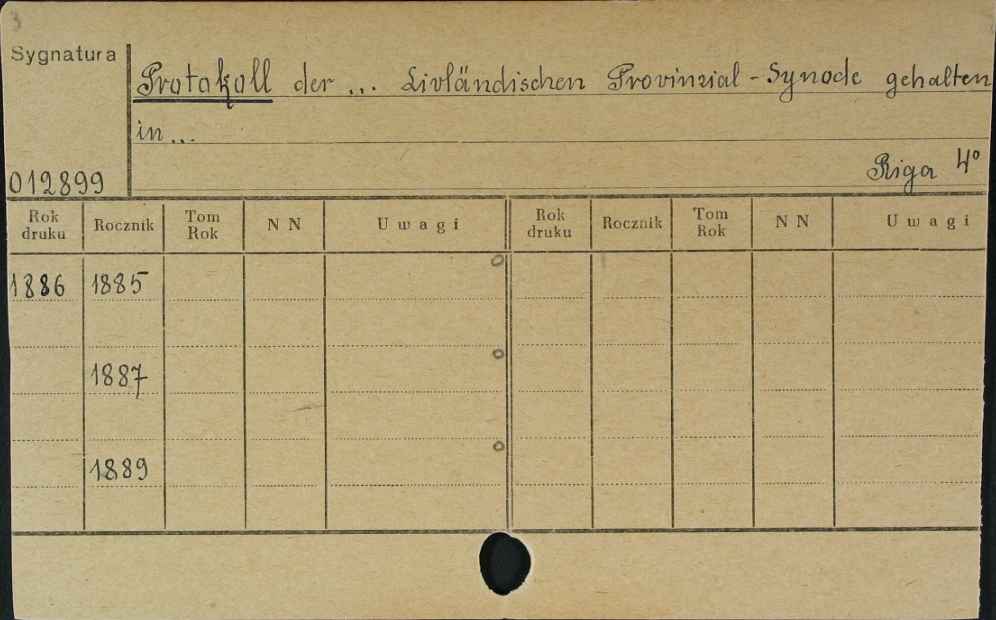 3
Sygnatura
Protokoll der ... Livländischen Provinzial-Synode gehalten
in ...
Riga 4°
012899
Rok druku Rocznik Tom Rok NN Uwagi Rok druku Rocznik Tom Rok NN Uwagi
1886 1885
1887
1889